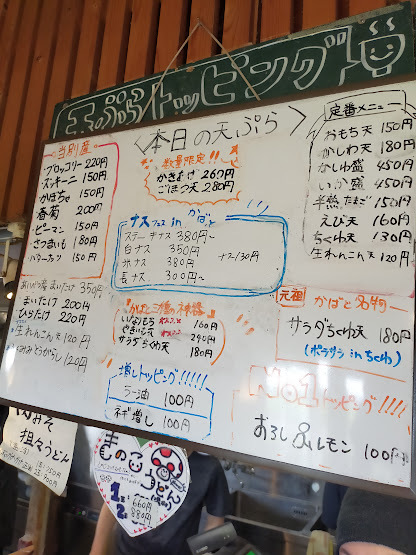 天ぷらトッピング
〈本日の天ぷら〉
当別産
ブロッコリー 220円
ズッキーニ 150円
かぼちゃ 150円
春菊 200円
ピーマン 150円
さつまいも 180円
バターナッツ 150円
まいたけ 350円
まいたけ 200円
ひらたけ 220円
生れんこん天 120円
とうがらし 120円
数量限定!!
かきあげ 260円
ごぼう天 280円
ナスフェス in かばと
ステーキナス 380円~
白ナス 350円
米ナス 380円
長ナス 300円~
ナス 130円
かばと三種の神器
いなりもち 160円
やきいも天 290円
サラダちくわ天 180円
増しトッピング!!!!!
ラー油 100円
ネギ増し 100円
定番メニュー
おもち天 150円
かしわ天 180円
かしわ盛 450円
いか盛 450円
半熟たまご 150円
えび天 160円
ちくわ天 130円
生れんこん天 120円
元祖 かばと名物
サラダちくわ天 180円
(ポテサラ in ちくわ)
No1トッピング!!!
おろし&レモン 100円
肉みそ
担々うどん
きのこうどん
1玉 660円
2玉